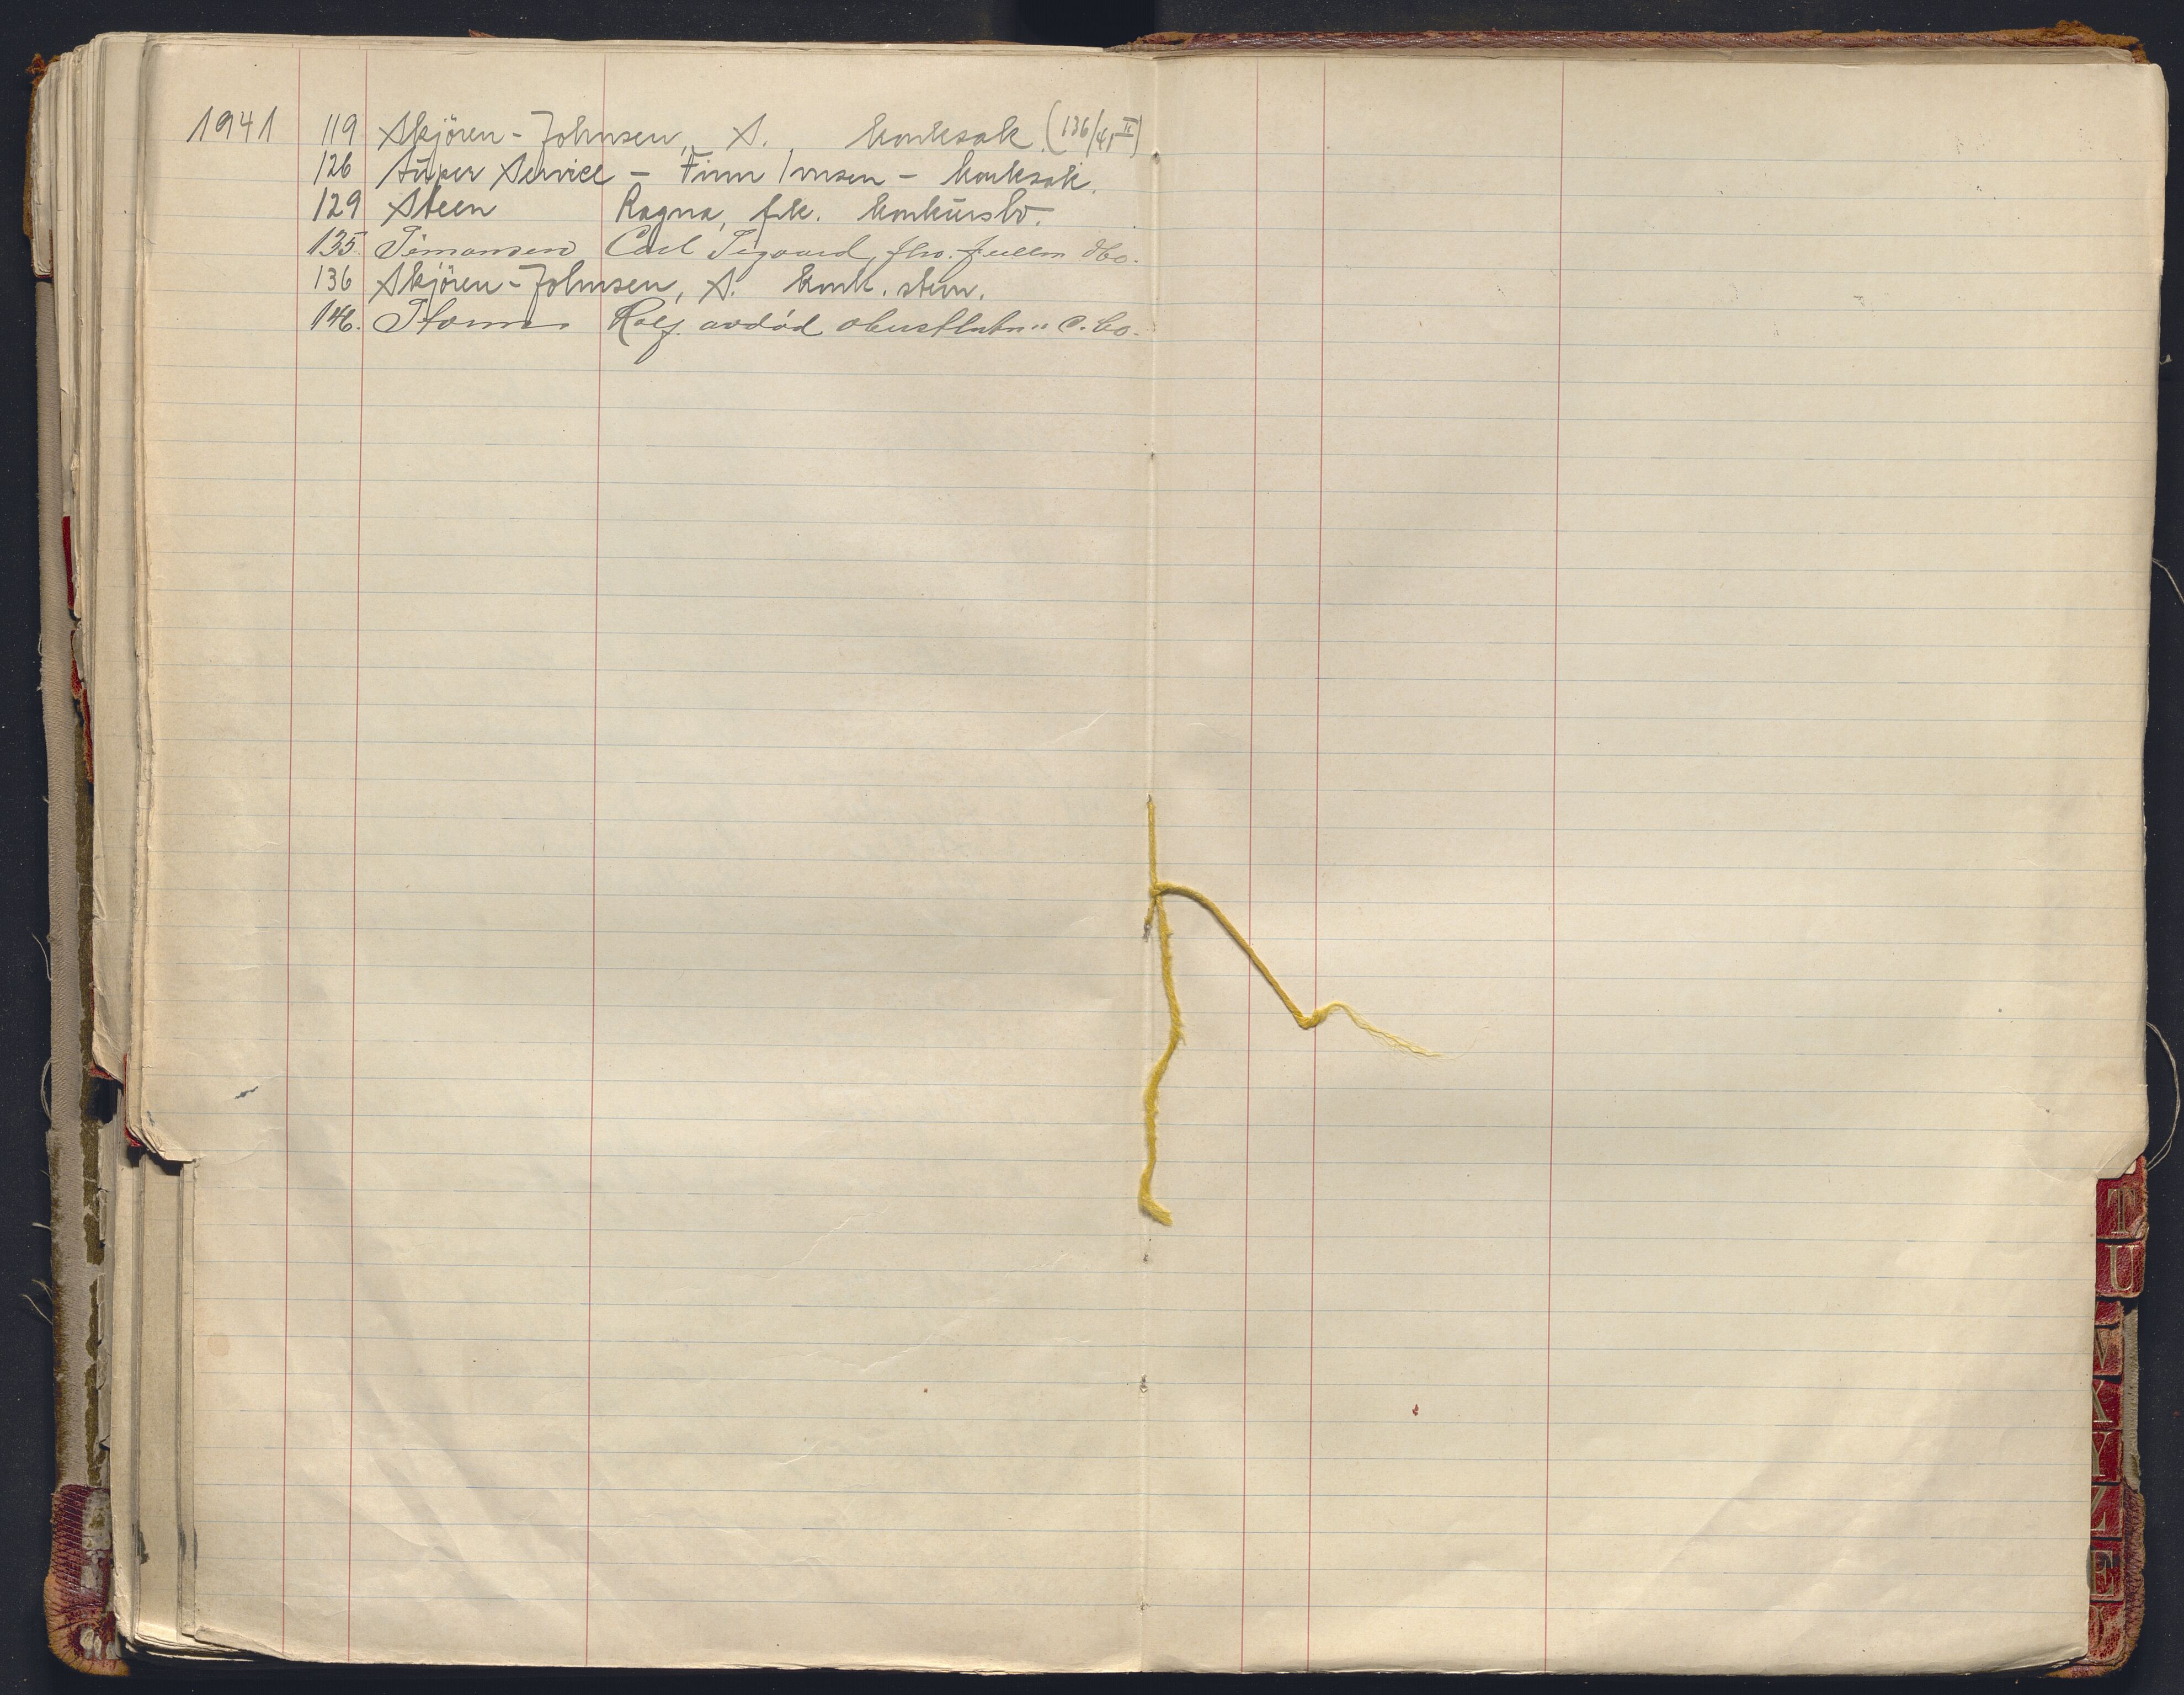 1941 119 Skjören-Johnsen, S. konksak. (136/41 II)
126 Süper Service - Finn Iversen - konksak.
129 Steen Ragna, frk. konkursbo.
135. Simonsen Carl Sigvard, fhv. fullm
136 Skjören-Johnsen, S. konk.
146. Rolf. avdöd
T
U
V
X
Y
Z
Æ
Ø